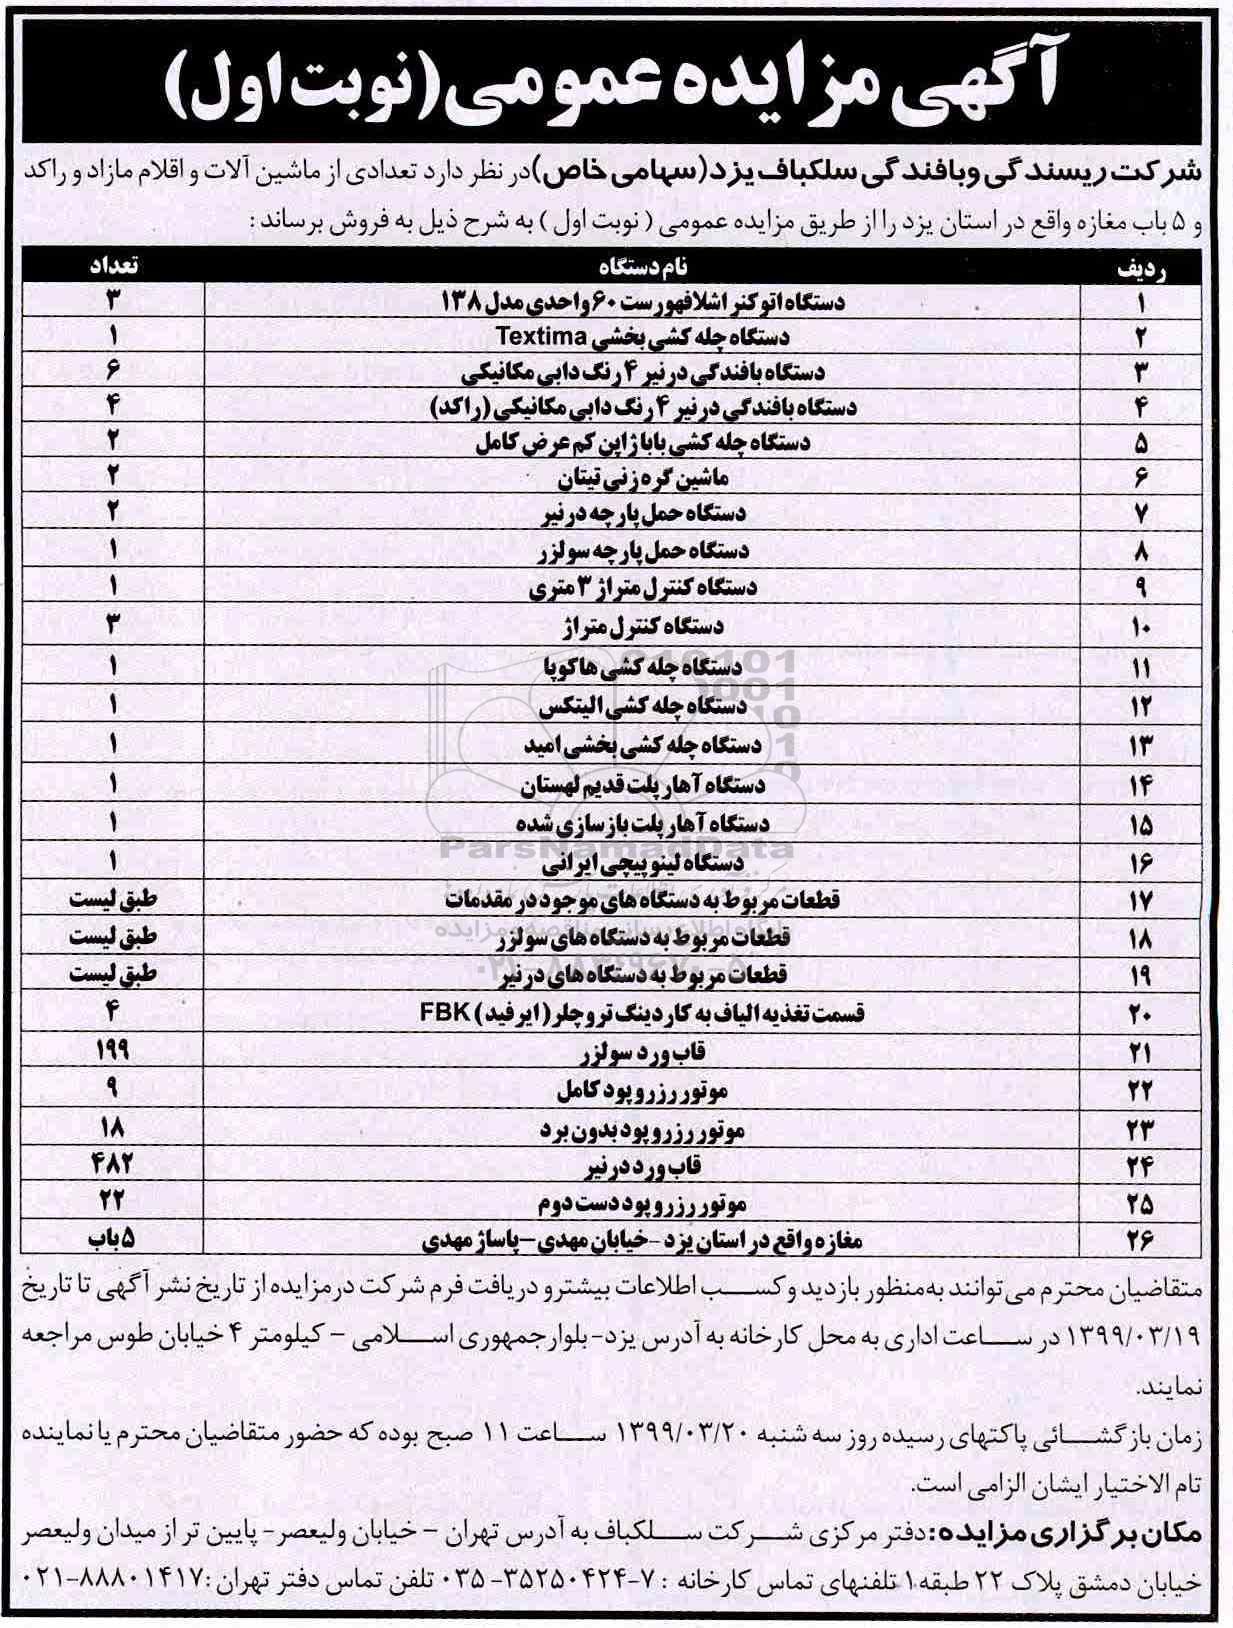 آگهی مزایده عمومی (نوبت اول)
شرکت ریسندگی و بافندگی سلکباف یزد (سهامی خاص) در نظر دارد تعدادی از ماشین آلات و اقلام مازاد و راکد
و ۵ باب مغازه واقع در استان یزد را از طریق مزایده عمومی ( نوبت اول ) به شرح ذیل به فروش برساند :
ردیف نام دستگاه تعداد
۱ دستگاه اتوکنر اشلافهورست ۶۰ واحدی مدل ۱۳۸ ۳
۲ دستگاه چله کشی بخشی Textima ۱
۳ دستگاه بافندگی درنیر ۴ رنگ دابی مکانیکی ۶
۴ دستگاه بافندگی درنیر ۴ رنگ دابی مکانیکی (راکد) ۴
۵ دستگاه چله کشی باباژاپن کم عرض کامل ۲
۶ ماشین گره زنی تیتان ۲
۷ دستگاه حمل پارچه درنیر ۲
۸ دستگاه حمل پارچه سولزر ۱
۹ دستگاه کنترل متراژ ۳ متری ۱
۱۰ دستگاه کنترل متراژ ۳
۱۱ دستگاه چله کشی هاکوپا ۱
۱۲ دستگاه چله کشی الیتکس ۱
۱۳ دستگاه چله کشی بخشی امید ۱
۱۴ دستگاه آهار پلت قدیم لهستان ۱
۱۵ دستگاه آهار پلت بازسازی شده ۱
۱۶ دستگاه لینو پیچی ایرانی ۱
۱۷ قطعات مربوط به دستگاه های موجود در مقدمات طبق لیست
۱۸ قطعات مربوط به دستگاه های سولزر طبق لیست
۱۹ قطعات مربوط به دستگاه های درنیر طبق لیست
۲۰ قسمت تغذیه الیاف به کاردینگ تروچلر (ایرفید) FBK ۴
۲۱ قاب ورد سولزر ۱۹۹
۲۲ موتور رزرو پود کامل ۹
۲۳ موتور رزرو پود بدون برد ۱۸
۲۴ قاب ورد درنیر ۴۸۲
۲۵ موتور رزرو پود دست دوم ۲۲
۲۶ مغازه واقع در استان یزد -خیابان مهدی –پاساژ مهدی ۵ باب
متقاضیان محترم می‌توانند به‌منظور بازدید و کسب اطلاعات بیشتر و دریافت فرم شرکت در مزایده از تاریخ نشر آگهی تا تاریخ
۱۳۹۹/۰۳/۱۹ در ساعت اداری به محل کارخانه به آدرس یزد- بلوار جمهوری اسلامی – کیلومتر ۴ خیابان طوس مراجعه
نمایند.
زمان بازگشائی پاکتهای رسیده روز سه شنبه ۱۳۹۹/۰۳/۲۰ ساعت ۱۱ صبح بوده که حضور متقاضیان محترم یا نماینده
تام الاختیار ایشان الزامی است.
مکان برگزاری مزایده: دفتر مرکزی شرکت سلکباف به آدرس تهران – خیابان ولیعصر- پایین تر از میدان ولیعصر
خیابان دمشق پلاک ۲۲ طبقه۱ تلفنهای تماس کارخانه : ۷-۳۵۲۵۰۴۲۴-۰۳۵ تلفن تماس دفتر تهران :۸۸۸۰۱۴۱۷-۰۲۱
ParsNamadData
پایگاه اطلاع رسانی مناقصه و مزایده